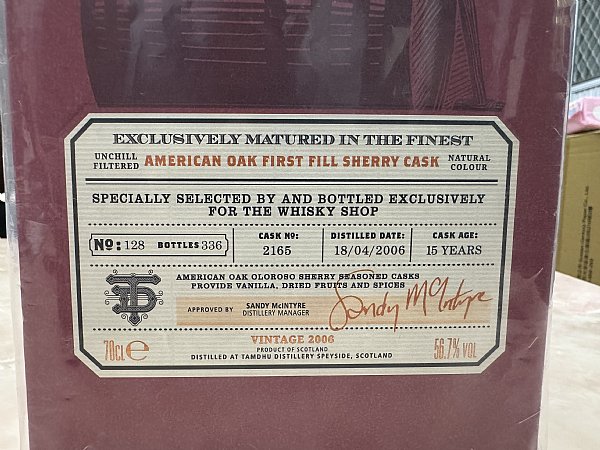 EXCLUSIVELY MATURED IN THE FINEST
UNCHILL FILTERED AMERICAN OAK FIRST FILL SHERRY CASK NATURAL COLOUR
SPECIALLY SELECTED BY AND BOTTLED EXCLUSIVELY
FOR THE WHISKY SHOP
Nº: 128 BOTTLES 336
CASK Nº:
2165
DISTILLED DATE:
18/04/2006
CASK AGE:
15 YEARS
AMERICAN OAK OLOROSO SHERRY SEASONED CASKS
PROVIDE VANILLA, DRIED FRUITS AND SPICES
APPROVED BY
SANDY McINTYRE
DISTILLERY MANAGER
Sandy McIntyre
VINTAGE 2006
PRODUCT OF SCOTLAND
DISTILLED AT TAMDHU DISTILLERY SPEYSIDE, SCOTLAND
70CL e
56.7% VOL